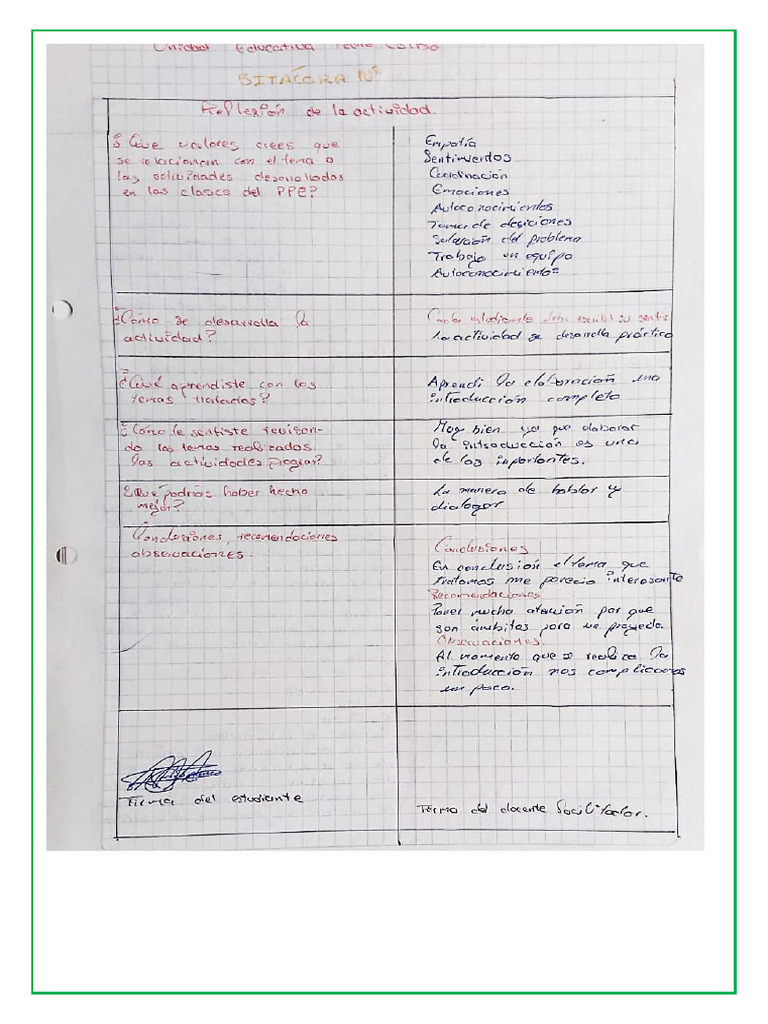 Unidad Educativa
BITACORA Nº
Reflexión de la actividad.
¿Que valores crees que
se relacionan con el tema o
las actividades desarrolladas
en las clases del PPE?
Empatía
Sentimientos
Coordinación
Emociones
Autoconocimientos
Toma de desiciones
Solución del problema
Trabajo en equipo
Autoconocimientos
¿Cómo se desarrolla la
actividad?
Cada estudiante debe escribir su sentir
La actividad se desarrolla práctico
¿Qué aprendiste con los
temas tratados?
Aprendí la elaboración una
introducción completo
¿Cómo te sentiste revisan-
do los temas realizados
las actividades
Muy bien ya que elaborar
la introducción es una
de las importantes.
¿Que podrías haber hecho
mejor?
La manera de hablar y
dialogar
Conclusiones, recomendaciones
observaciones.
Conclusiones
En conclusión el tema que
tratamos me parecio interesante
Recomendaciones
Poner mucha atención por que
son ámbitos para un proyecto.
Observaciones.
Al momento que se realiza la
introducción nos complicamos
un poco.
Firma del estudiante
Firma del docente Facilitador.